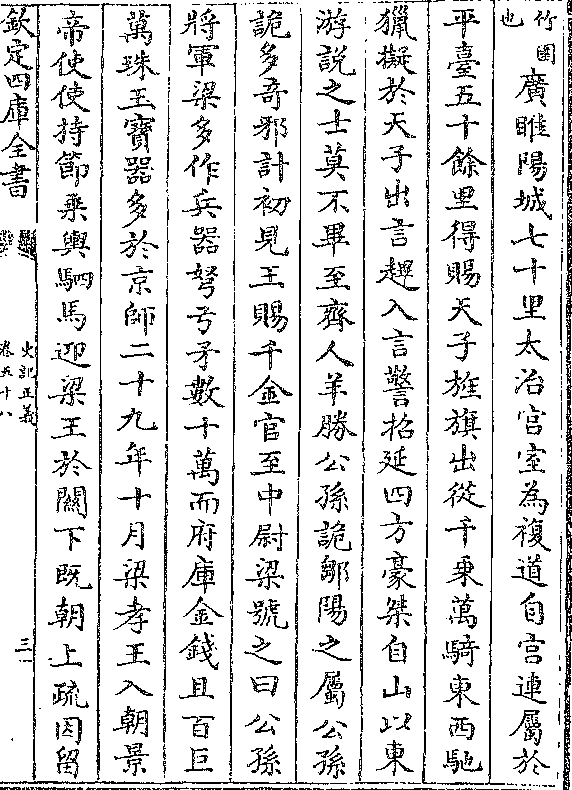 竹園
也
廣睢陽城七十里太治宫室為複道自宫連屬於
平臺五十餘里得賜天子旌旗出從千乗萬騎東西馳
獵擬於天子出言䟆入言警招延四方豪桀自山以東
游説之士莫不畢至齊人羊勝公孫詭鄒陽之屬公孫
詭多竒邪計初見王賜千金官至中尉梁號之曰公孫
將軍梁多作兵器弩弓矛數十萬而府庫金錢且百巨
萬珠玉寶器多於京師二十九年十月梁孝王入朝景
帝使使持節乗輿駟馬迎梁王於闗下既朝上疏因留
欽定四庫全書
史記正義
卷五十八
三